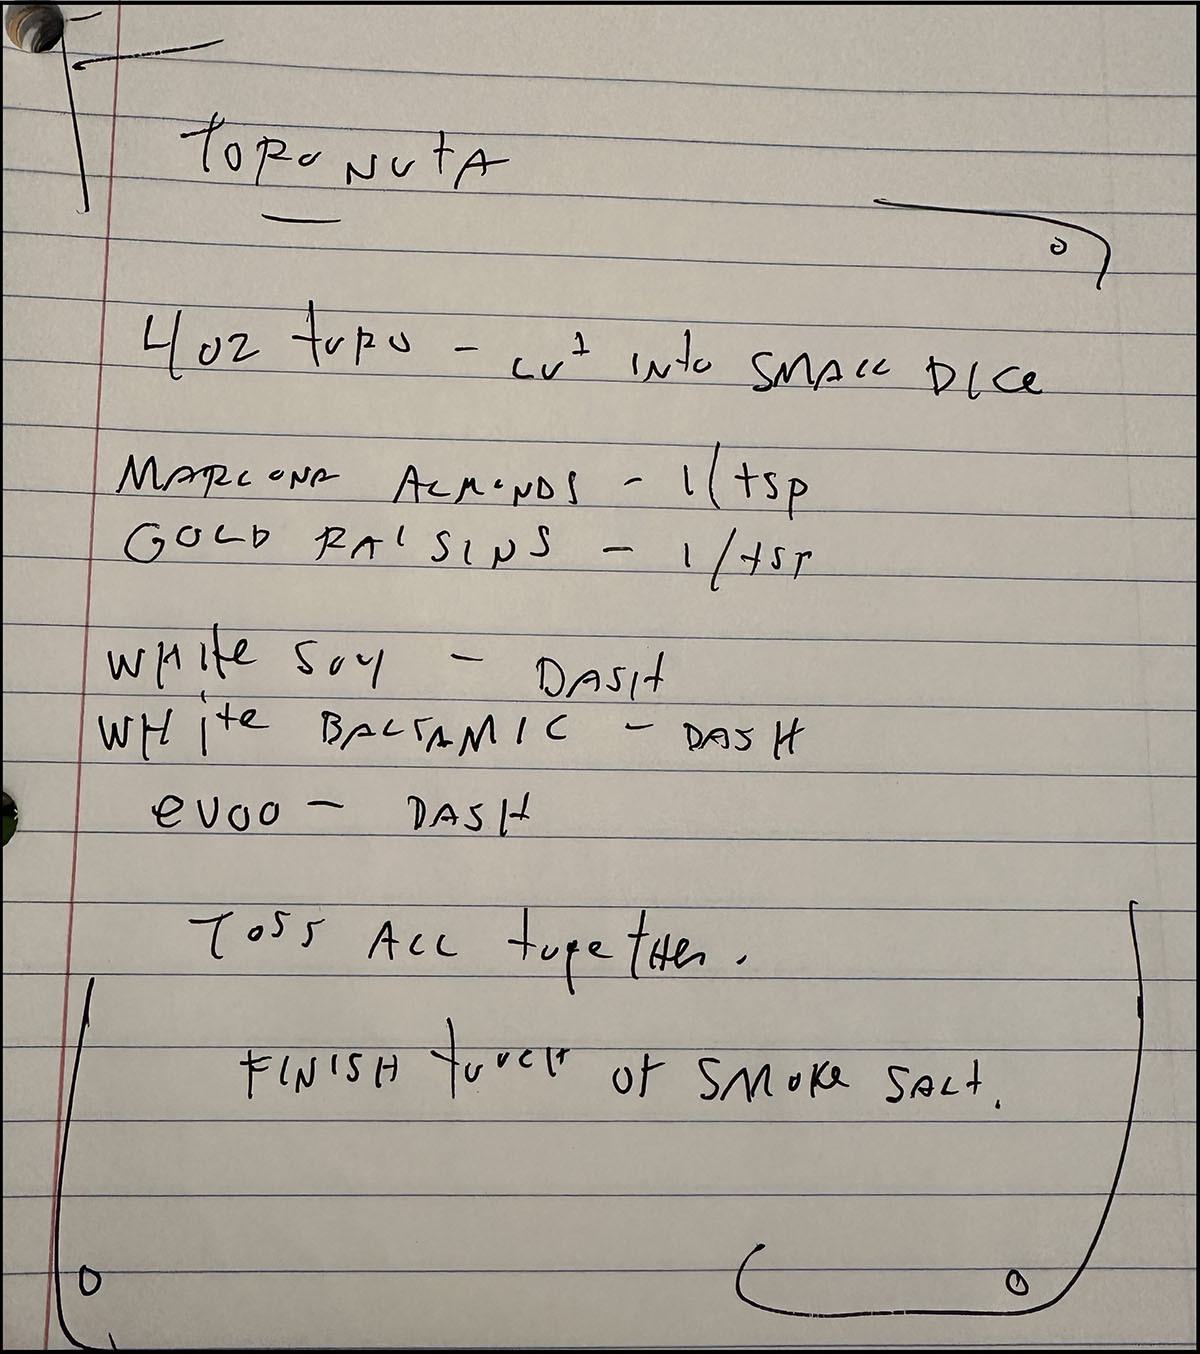 TORO NUTA
4 oz toro - cut into SMALL DICe
MARCONA ALMONDS - 1/tsp
GOLD RAISINS - 1/tsp
WHIte Soy - DASH
WHite BALSAMIC - DASH
evoo - DASH
Toss ALL togetHer.
FINISH touch of SMOKe SALt.